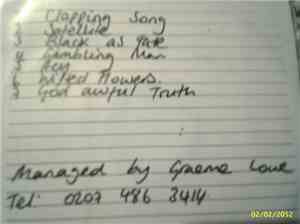 Clapping Song
2 Satellite
3 Black as
4 Gambling Man
5
6 Flowers.
God awful Truth
Managed by Graeme Lowe
Tel: 0207 486 3414
02/02/2012